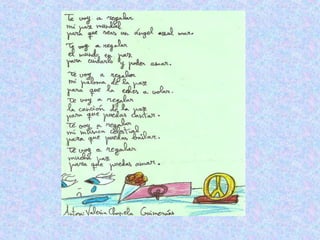 Te voy a regalar
mi paz mundial
para que seas un ángel
Te voy a regalar
el mundo en paz
para cuidarlo y poder amar.
Te voy a regalar
mi paloma de la paz
para que la eches a volar.
Te voy a regalar
la canción de la paz
para que puedas cantar.
Te voy a regalar
mi música celestial
para que puedas bailar.
Te voy a regalar
mucha paz
para que puedas amar.
Autora: Valeria Chapela